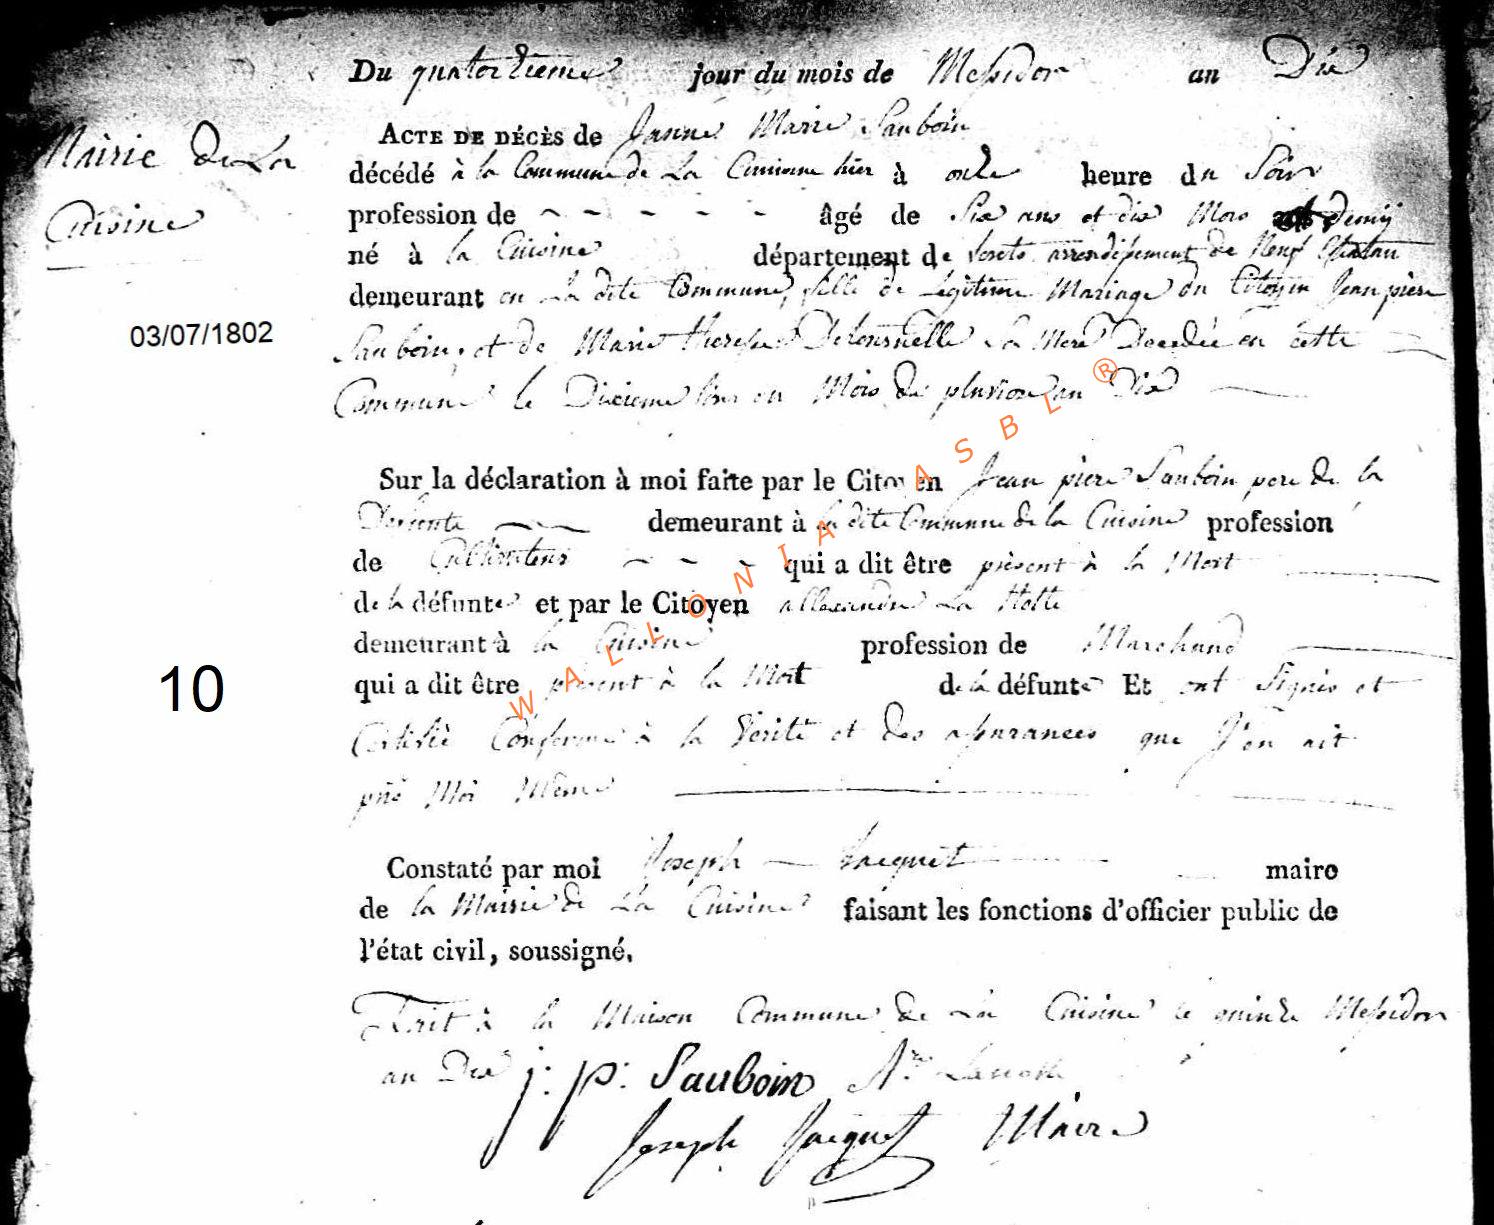 Du quatorzieme jour du mois de Messidor an Dix
Mairie de La
Cuisine
ACTE DE DÉCÈS de Janne Marie Sauboin
décédé à la Commune de La Cuisine hier à onze heure du Soir
profession de ~ - - - - - âgé de Six ans et dix Mois demij
né à la Cuisine département de forets arrondissement de Neuf Chatau
demeurant en La dite Commune, fille de Legitime Mariage du Citoyen Jean piere
Sauboin, et de Marie therese Delournelle Sa Mere Decedée en cette
Commune le Dixieme Jour du Mois de pluviose an Dix
03/07/1802
Sur la déclaration à moi faite par le Citoyen Jean piere Sauboin pere de la
Defunte demeurant à la dite Commune de la Cuisine profession
de Cultivateur ~ ~ - qui a dit être présent à la Mort
de la défunte et par le Citoyen allexandre La Motte
demeurant à la Cuisine profession de Marchand
qui a dit être présent à la Mort de la défunte Et ont Signés et
Certifié Conforme à la Verité et des assurances que J'en ait
pris Moi Même
10
Constaté par moi Joseph Jacquet maire
de la Mairie de La Cuisine faisant les fonctions d'officier public de
l'état civil, soussigné.
Fait à la Maison Commune de La Cuisine le quinze Messidor
an Dix
j: p: Sauboin
Joseph Jacquet Maire
WALLONIA ASBL®